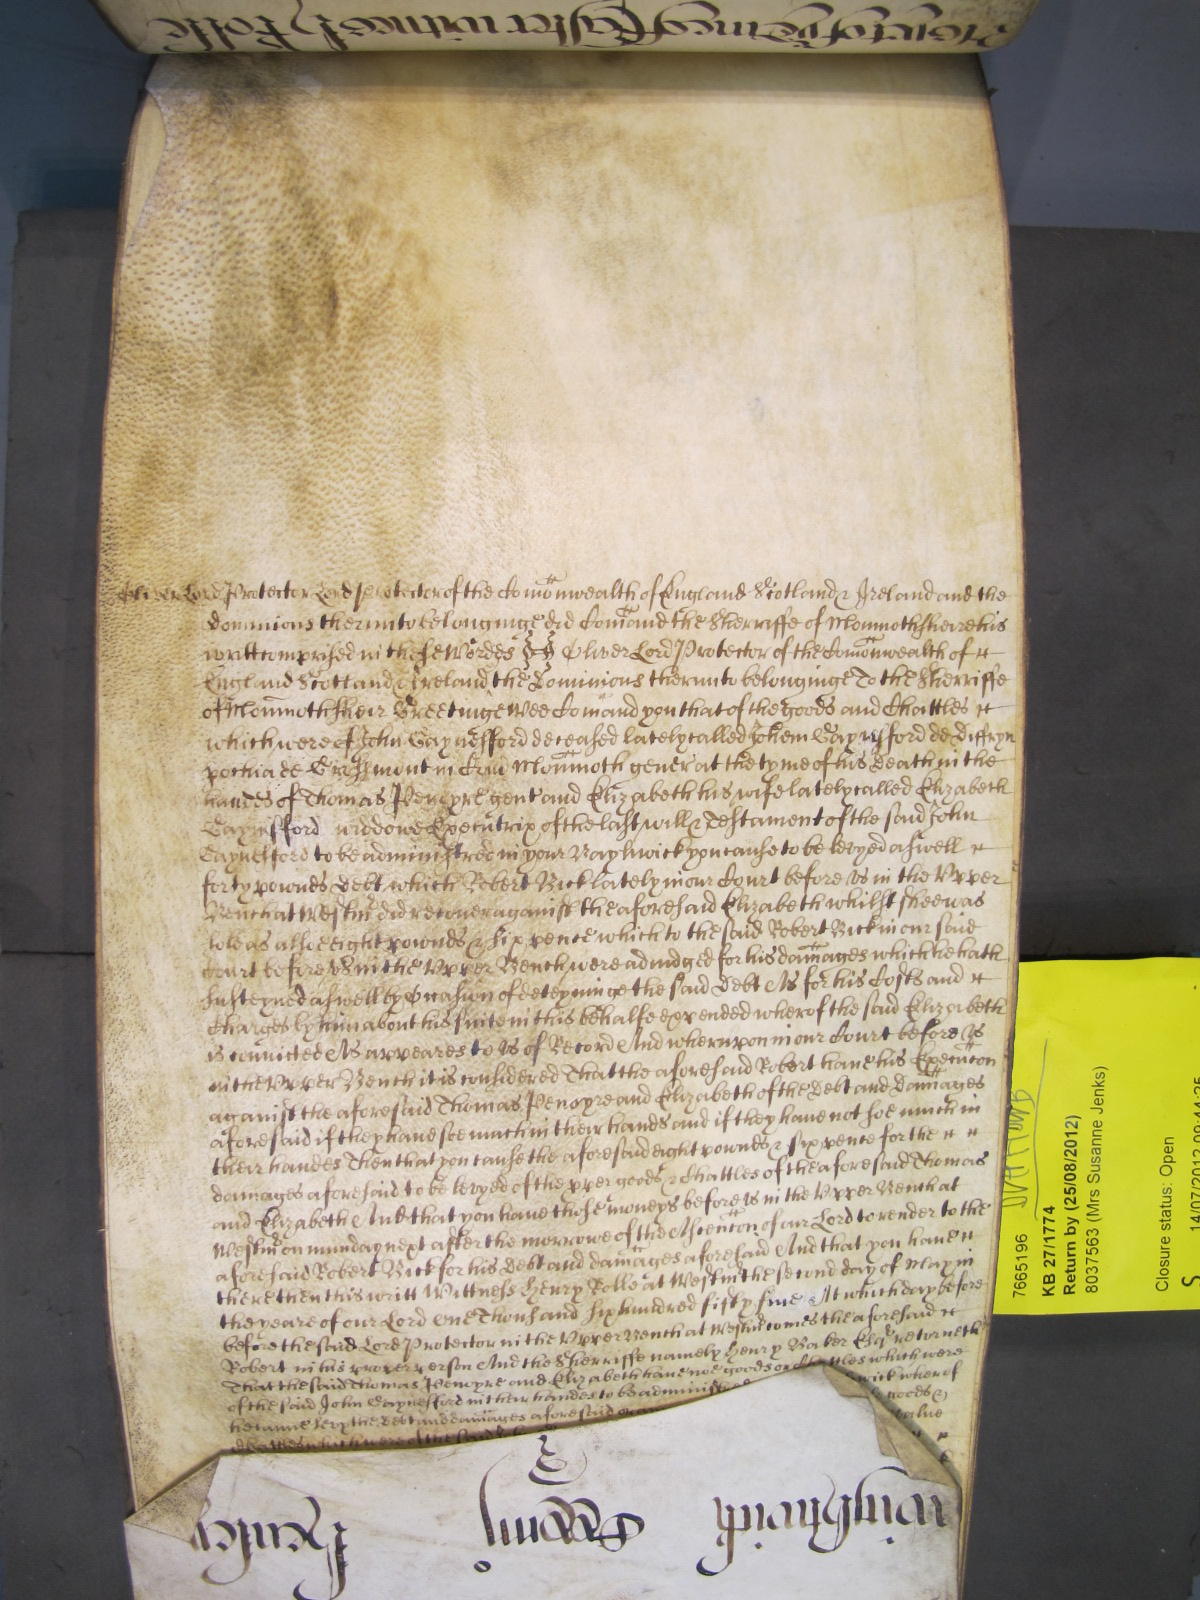 Oliver Lord Protector Lord protector of the Comonwealth of England Scotland & Ireland and the
dominions therunto belonginge did Comand the Sherriffe of Monmothsheire his
writt comprised in these Wordes ss Oliver Lord Protector of the Comonwealth of
England Scotland & Ireland the Dominions therunto belonginge To the Sherriffe
of Monmothsheir Greetinge Wee Comand you that of the goods and Chattles
which were of John Gaynsford deceased lately called Johem Gaynsford de Diffryn
pochia de Grossmont in Com Monmoth gener at the tyme of his death in the
handes of Thomas Penoyre gent and Elizabeth his wife lately called Elizabeth
Gaynsford widdowe Executrix of the last will & Testament of the said John
Gaynsford to be administred in your Baylywick you cause to be levyed aswell
forty pownds debt which Robert Bick lately in our Court before us in the Upper
Bench at Westm did recover against the aforesaid Elizabeth whilst shee was
sole as alsoe eight pownds & six pence which to the said Robert Bick in our said
Court before us in the Upper Bench were adiudged for his damages which he hath
susteyned aswell by occasion of deteyninge the said debt As for his Costs and
Charges by him about his suite in this behalfe expended wherof the said Elizabeth
is convicted As appeares to us of Record And wherupon in our Court before us
in the Upper Bench it is considered That the aforesaid Robert have his Execucon
against the aforesaid Thomas Penoyre and Elizabeth of the debt and damages
aforesaid if they have soe much in their hands and if they have not soe much in
their handes Then that you cause the aforesaid eight pownds & six pence for the
damages aforesaid to be levyed of the pper goods & Chattles of the aforesaid Thomas
and Elizabeth And that you have those moneys before us in the Upper Bench at
Westm on munday next after the morrowe of the Ascencon of our Lord to render to the
aforesaid Robert Bick for his debt and damages aforesaid And that you have
there then this writt Wittness Henry Rolle at Westm the second day of May in
the yeare of our Lord one Thousand six hundred fifty five At which day before
before the said Lord Protector in the Upper Bench at Westm comes the aforesaid
Robert in his proper person And the Sherriffe namely Henry Baker Esqr returneth
That the said Thomas Penoyre and Elizabeth have noe goods or Chattles which were
of the said John Gaynsford in their handes to be administ wick wherof
he cann levy the debt and damages aforesaid goods
Chattles which were of the said value
7665196
KB 27/1774
Return by (25/08/2012)
8037563 (Mrs Susanne Jenks)
Closure status: Open